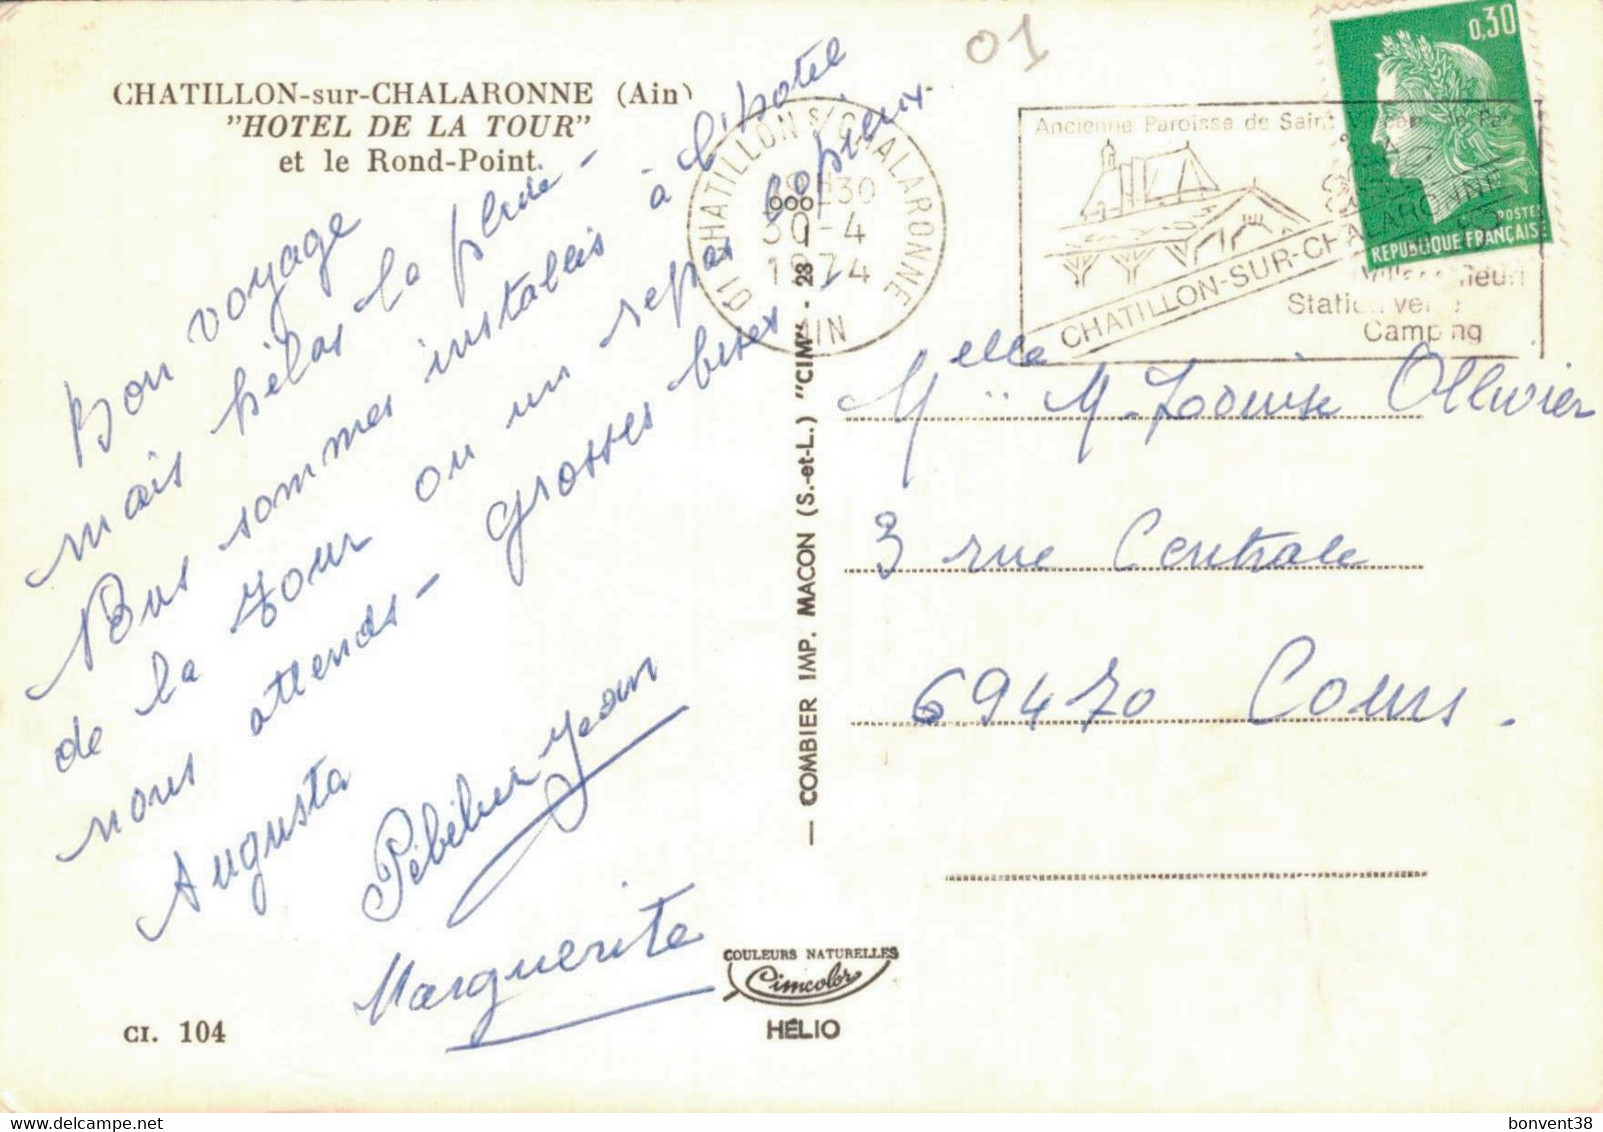 CHATILLON-sur-CHALARONNE (Ain)
"HOTEL DE LA TOUR"
et le Rond-Point.
01
Bon voyage
mais hélas la pluie -
Nous sommes installés à l'hotel
de la Tour ou un repas copieux
nous attends - grosses bises
Augusta
Jean
Marguerite
CI. 104
COULEURS NATURELLES
Cimcolor
HÉLIO
— COMBIER IMP. MACON (S.-et-L.) "CIM" - 23
01 CHATILLON s/CHALARONNE
30-4
1974
AIN
Ancienne Paroisse de Saint
CHATILLON-SUR-CHALARONNE
Station verte
Camping
0,30
POSTES
REPUBLIQUE FRANÇAISE
Melle M. Louise Ollivier
3 rue Centrale
69470 Cours.
bonvent38